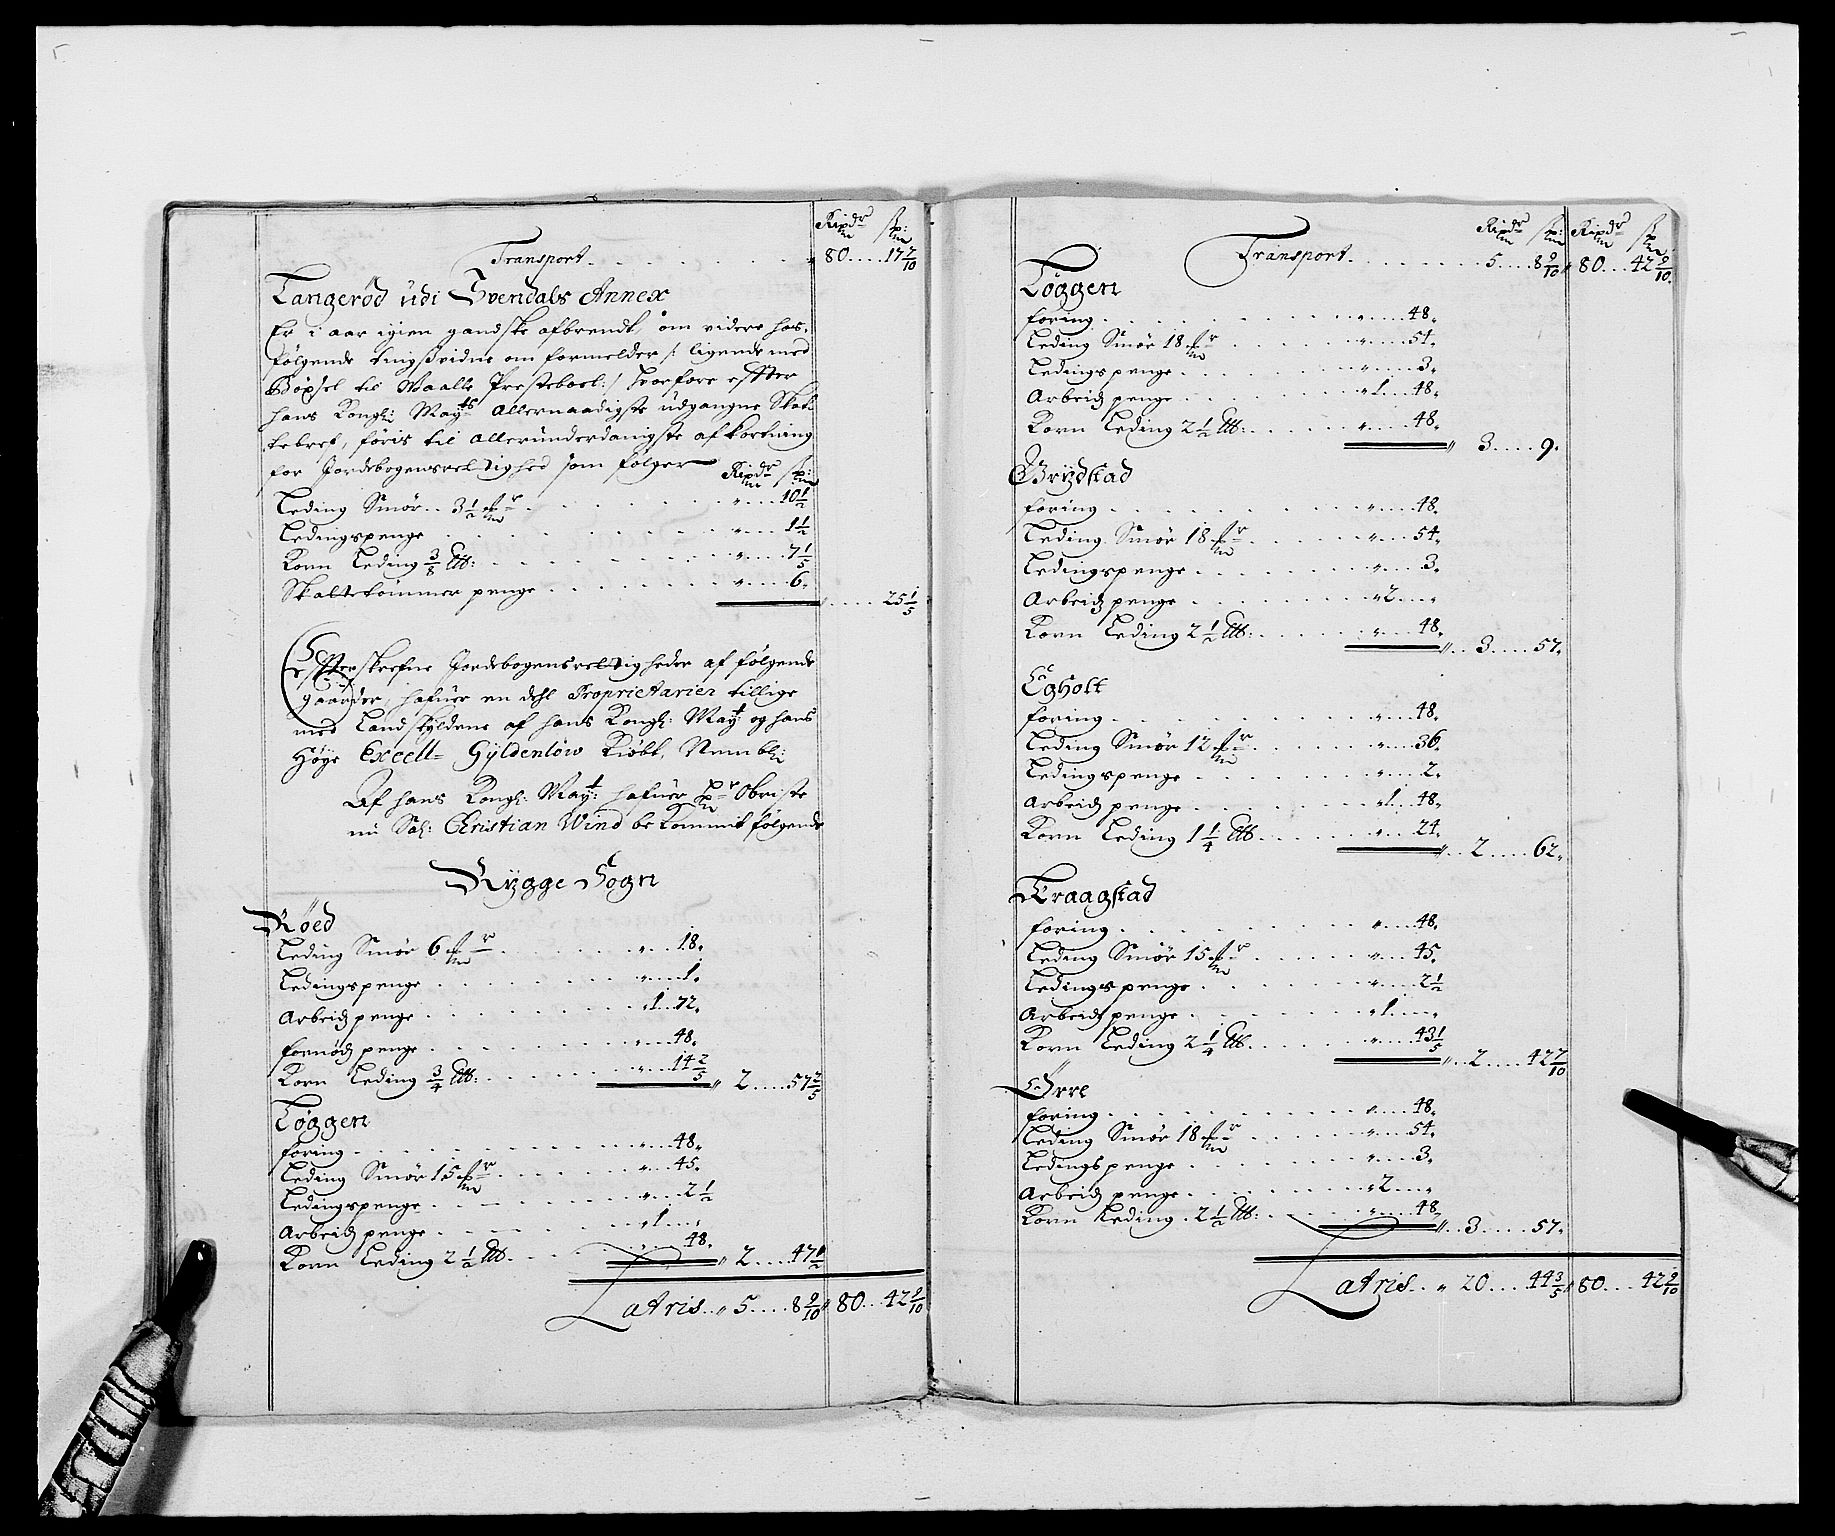 Ripdr ſk:
Transport . . . . . . . . " 80 .... 17 7/10
Tangerød udi Svendals Annex
Er i aar igien gandske afbrendt, om videre hos-
følgende tingsvidne om formelder /: ligende med
Böxsel til Waalle Presteboel :/ hvorfore efter
hans Kongl: Mayts allernaadigste udgangne Skat-
tebref, føris til allerunderdanigste afkortning
for Jordebogensrettighed som følger Ripdr ſk:
Leding Smør .. 3 1/2 . . . . . . " .... 10 1/2
Ledingspenge . . . . . . . " .... 1 1/2
Korn Leding 3/8 Ltt: . . . . . . " .... 7 1/5
Skattekömmer penge . . . . . . " .... 6.
" .... 25 1/5
Efterskrefne Jordebogensrettigheder af følgende
gaarder, hafuer en dehl Proprietarier tillige
med Landskyldene af hans Kongl: Mayt: og hans
Høye Excell= Gyldenløw Kiøbt, Nembl:
Af hans Kongl: Mayt: hafuer Hr Obriste
nu Sal: Christian Wind bekommit følgende
Rygge Sogn
Røed
Leding Smør 6 . . . . . . " ... 18.
Ledingspenge . . . . . . . " .... 1.
Arbeids penge . . . . . . . " 1 .. 72.
fornøds penge . . . . . . . " .... 48.
Korn Leding 3/4 Ltt: . . . . . . " .... 14 2/5
" 2 .... 57 2/5
Løggen
foring . . . . . . . . . " .... 48.
Leding Smør 15 . . . . . " .... 45.
Ledingspenge . . . . . . . " .... 2 1/2
Arbeids penge . . . . . . . " 1 .... "
Korn Leding 2 1/2 Ltt. . . . . . " .... 48.
" 2 .... 47 1/2
Latris .. " 5 .... 8 9/10 " 80 ... 42 9/10
Ripdr ſk: Ripdr ſk:
Transport . . . . . . . 5 .... 8 9/10 " 80 ... 42 9/10.
Løggen
foring . . . . . . . . . " .... 48.
Leding Smør 18 . . . . . " .... 54.
Ledingspenge . . . . . . . " .... 3.
Arbeids penge . . . . . . . " 1 ... 48.
Korn Leding 2 1/2 Ltt: . . . . . " .... 48.
" 3 .... 9.
Brydstad
foring . . . . . . . . . " .... 48.
Leding Smør 18 . . . . . " .... 54.
Ledingspenge . . . . . . . " .... 3.
Arbeids penge . . . . . . . " 2 .... "
Korn Leding 2 1/2 Ltt: . . . . . " .... 48.
" .. 3 .... 57.
Egholt
foring . . . . . . . . . " .... 48.
Leding Smør 12 . . . . . " .... 36.
Ledingspenge . . . . . . . " .... 2.
Arbeids penge . . . . . . . " 1 ... 48.
Korn Leding 1 1/4 Ltt . . . . . " .... 24.
" .. 2 .... 62.
Kraagstad
foring . . . . . . . . . " .... 48.
Leding Smør 15 . . . . . " .... 45.
Ledingspenge . . . . . . . " .... 2 1/2
Arbeids penge . . . . . . . " 1 .... "
Korn Leding 2 1/4 Ltt. . . . . . " .... 43 1/5
" .. 2 .... 42 7/10
Ørre
foring . . . . . . . . . " .... 48.
Leding Smør 18 . . . . . " .... 54.
Ledingspenge . . . . . . . " .... 3.
Arbeids penge . . . . . . . " 2 .... "
Korn Leding . 2 1/2 Ltt: . . . . . " .... 48.
" .. 3 .... 57.
Latris .. " 20 .... 44 3/5 " 80 ... 42 9/10